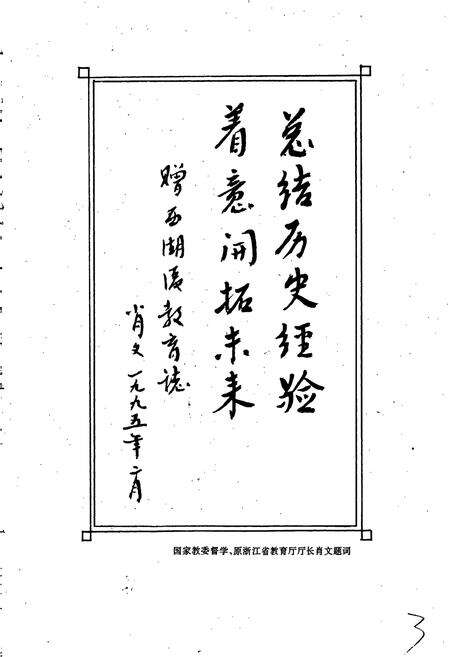 总结历史经验
着意开拓未来
赠西湖区教育志
肖文一九九五年二月
国家教委督学、原浙江省教育厅厅长肖文题词
3